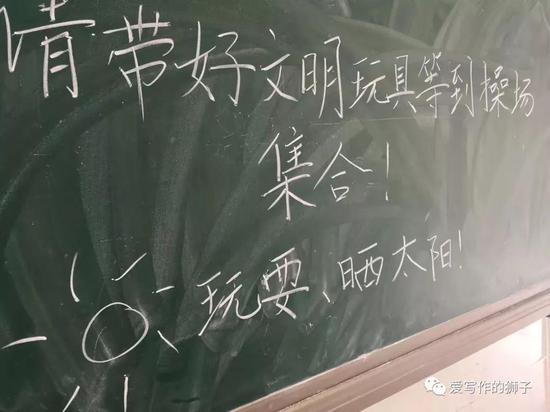 请带好文明玩具等到操场
集合!
玩耍、晒太阳!
爱写作的狮子